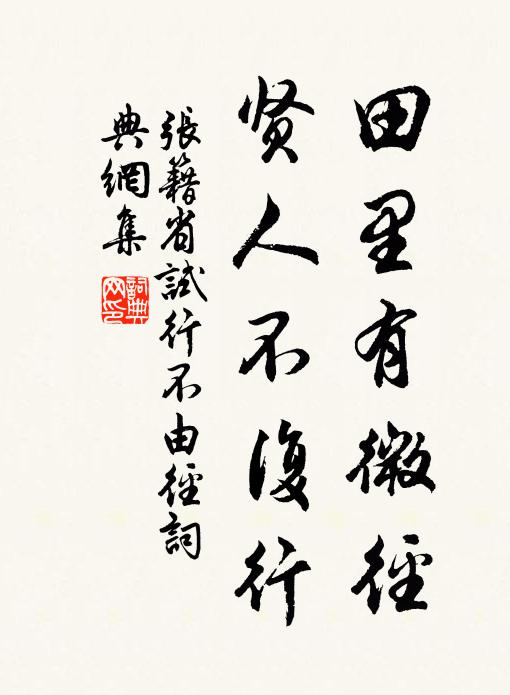 田里有微徑
贤人不復行
張籍省試行不由徑詞
典網集
詞典网印